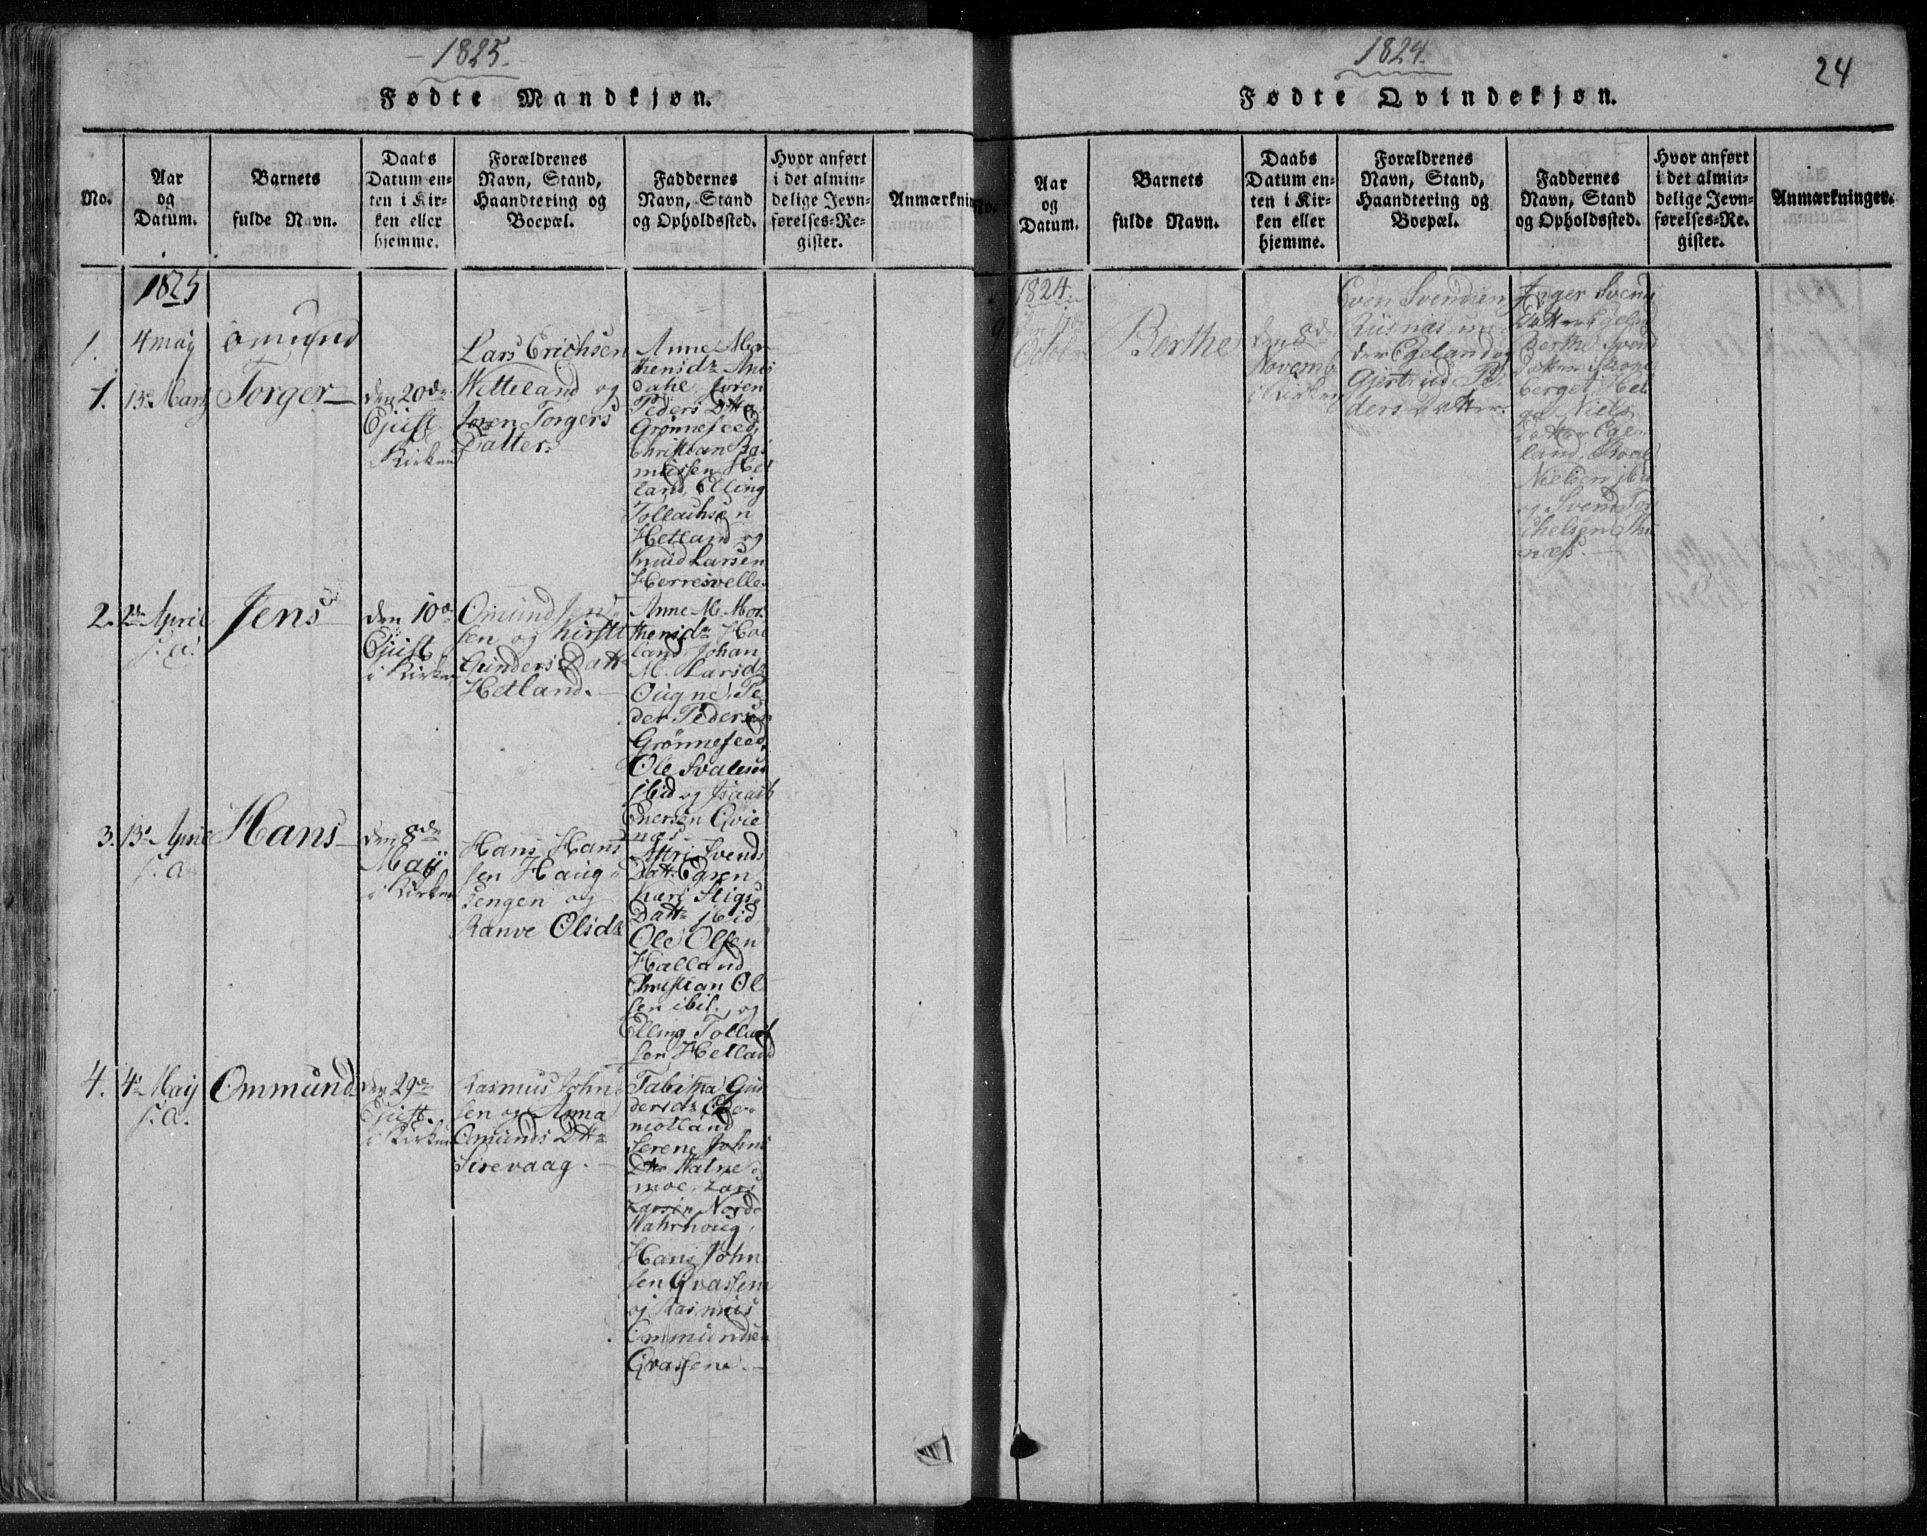 1825.
Fødte Mandkjøn.
No.
Aar
og
Datum.
Barnets
fulde Navn.
Daabs
Datum en-
ten i Kir-
ken eller
hjemme.
Forældrenes
Navn, Stand,
Haandtering og
Boepæl.
Faddernes
Navn, Stand
og Opholdssted.
Hvor anført
i det almin-
delige Jevn-
førelses-Re-
gister.
Anmærknin
1825
1. 4 may omund
1. 13de Marz Torger
den 20de
Ejusd.
Kirken
Lars Erichsen
Wetteland og
Joren Torgers
Datter.
Anne Mor
thensdr Anis
dahl, Joren
Peders Dttr
Grønnefeed,
Christian Ras
mussen Het
land, Elling
Tollachsen
Hetland og
Knud Larsen
Herresvelle
2. 2de April
s. a.
Jens
den 10de
Ejusd.
i Kirken
Omund Jen
sen og Kirsti
Gunders Datt
Hetland.
Anne M. Mor
thensdr Hol
land, Johan
M. Larsdr
Ougne, Pe
der Peders
Grønnefeed,
Ole Svales
ibid og Isaach
Enersen Qvie
næs.
3. 13de April
s. a.
Hans
den 8de
Maÿ
i Kirken
Hans Hans
sen Haug
Eengen og
Ranve Olsdr
Attri Svends
Datt. Egren
Kari Stigs
Dattr ibid
Ole Olsen
Halland
Christian Ol
sen ibid., og
Elling Tollac
sen Hetland
4. 4de May
s. a.
Ommund
den 29de
Ejusd.
i Kirken
Rasmus John
sen og Anna
Omunds Dttr
Sirevaag.
Tabitha Gun
dersdr Obre
motland
Serene Johns
Dtr Hatne
moe, Lars
Larsen Norde
Hahrhoug,
Hans John
sen Qvassem
og Rasmus
Ommundsen
Qvassem.
1824.
24
Fødte Qvindekjøn.
No.
Aar
og
Datum.
Barnets
fulde Navn.
Daabs
Datum en-
ten i Kir-
ken eller
hjemme.
Forældrenes
Navn, Stand,
Haandtering og
Boepæl.
Faddernes
Navn, Stand
og Opholdssted.
Hvor anført
i det almin-
delige Jevn-
førelses-Re-
gister.
Anmærkninger.
1824.
9
Octobr
Berthe
den 8de
Novemb
i Kirken
Even Svendsen
Rusnæs un
der Egeland og
Gjertrud Pe
ders Datter.
Inger Svend
Datter Egeland
Berthe Svend
Datter Skone
berget, Hel
ga Niels
Datter Ege
land, Roal
Nielsen ibid
og Svend Tor
chelsen Thu
næss.